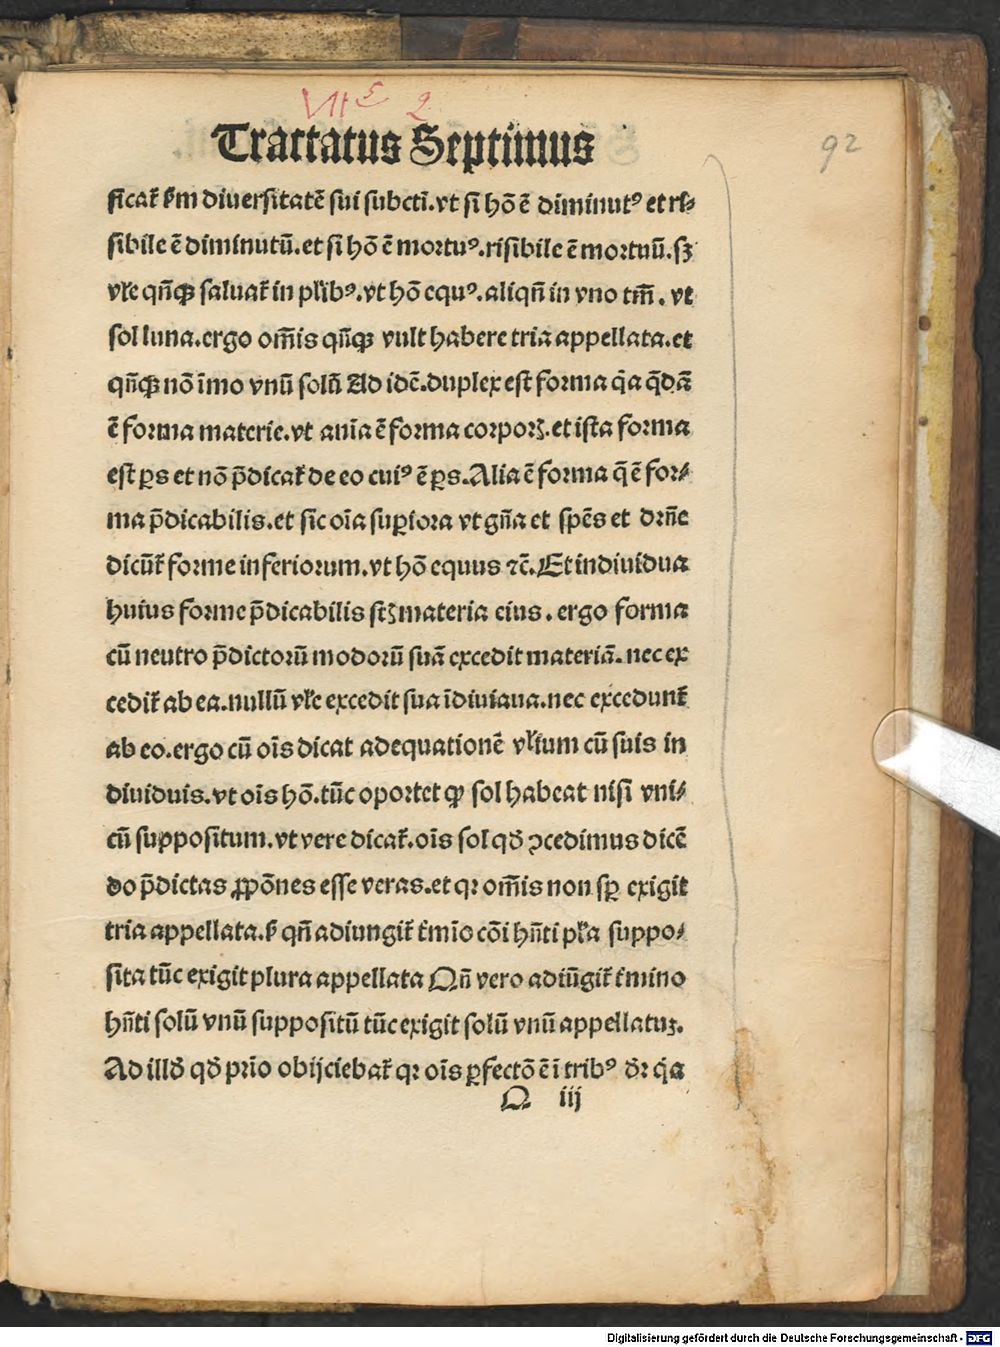 VIIꝰ 2
Tractatus Septimus
92
ficat̃ ẜm diuersitatẽ sui subcti.vt si hõ ẽ diminutꝰ et ri-
sibile ẽ diminutũ.et si hõ ẽ moꝛtuꝰ.risibile ẽ moꝛtuũ.sꝫ
vľe qñqꝫ saluat̃ in plĩbꝰ.vt hõ equꝰ.aliqñ in vno tm̃. vt
sol luna.ergo om̃is qñqꝫ vult habere tria appellata.et
qñqꝫ nõ ĩmo vnũ solũ Ad idẽ.duplex est foꝛma q̃a q̃dã
ẽ foꝛma materie.vt aĩa ẽ foꝛma coꝛpoꝛꝫ.et ista foꝛma
est ꝑs et nõ p̃dicat̃ de eo cuiꝰ ẽ ꝑs.Alia ẽ foꝛma q̃ ẽ foꝛ-
ma p̃dicabilis.et sic oĩa suꝑioꝛa vt gña et spẽs et drñe
dicũt̃ foꝛme inferioꝛum.vt hõ equus ⁊c̃.Et indiuidua
huius foꝛme p̃dicabilis st̃ꝫ materia eius. ergo foꝛma
cũ neutro p̃dictoꝛũ modoꝛũ suã excedit materiã. nec ex
cedit̃ ab ea.nullũ vľe excedit sua ĩdiuiaua.nec excedunt̃
ab eo.ergo cũ oĩs dicat adequationẽ vľium cũ suis in
diuiduis.vt oĩs hõ.tũc opoꝛtet ꝙ sol habeat nisi vni-
cũ suppositum.vt vere dicat̃.oĩs sol qđ ꝯcedimus dicẽ
do p̃dictas ꝓpõnes esse veras.et qꝛ om̃is non sꝑ exigit
tria appellata.ẜ qñ adiungit̃ t̃mĩo cõi hñti pľa suppo-
sita tũc exigit plura appellata Qñ vero adiũgit̃ t̃mino
hñti solũ vnũ suppositũ tũc exigit solũ vnũ appellatuꝫ.
Ad illđ qđ prĩo obijciebat̃ qꝛ oĩs ꝑfectõ ẽ ĩ tribꝰ đꝛ q̃a
Q iij
Digitalisierung gefördert durch die Deutsche Forschungsgemeinschaft - DFG